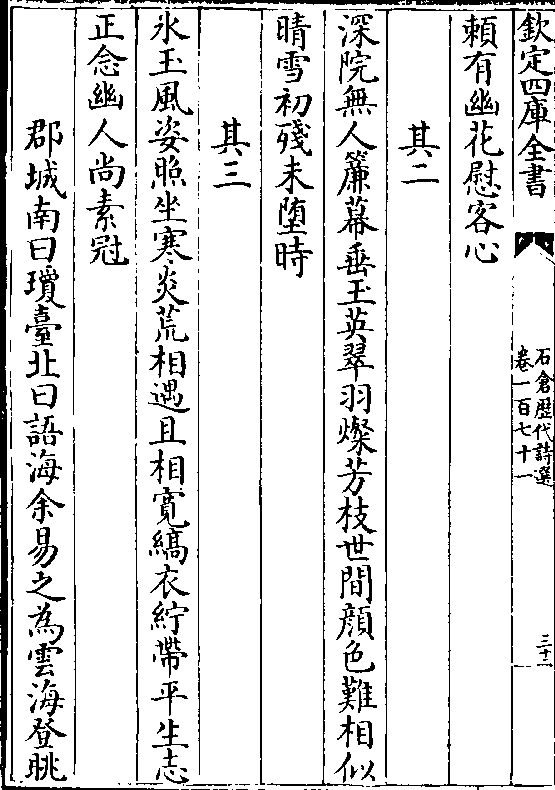 欽定四庫全書
石倉歴代詩選
卷一百七十一
三十二
頼有幽花慰客心
其二
深院無人簾幕垂玉英翠羽燦芳枝世間顔色難相似
晴雪初殘未墮時
其三
氷玉風姿照坐寒炎荒相遇且相寛縞衣紵帶平生志
正念幽人尚素冠
郡城南曰瓊臺北曰語海余易之為雲海登眺